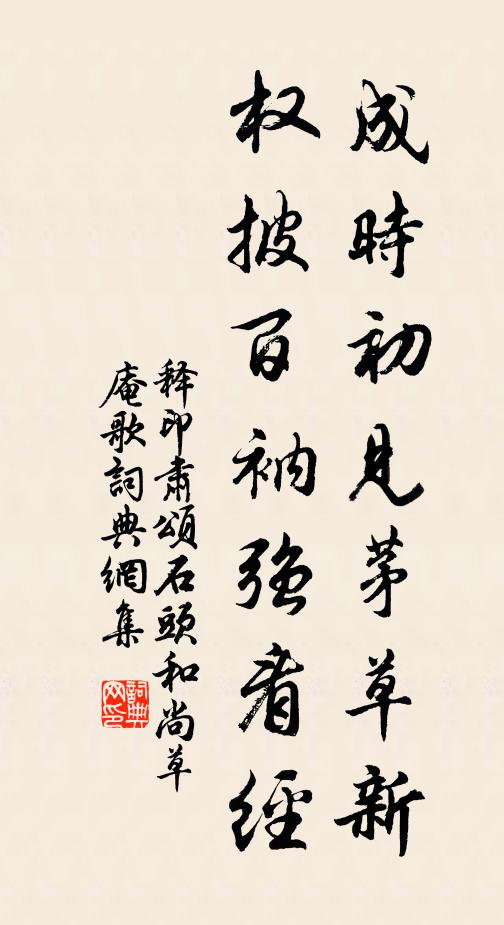 成時初見茅草新
权披百衲強看經
释印肅頌石頭和尚草
庵歌詞典網集
詞典
网印